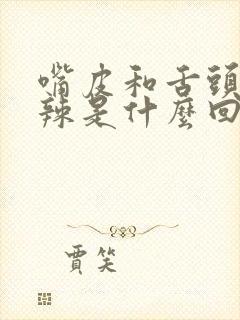 嘴皮和舌頭
辣是什麼回
賈笑